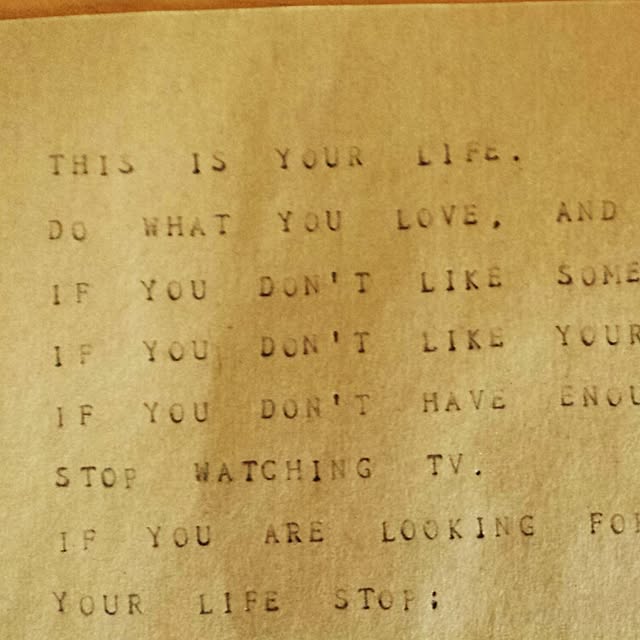 THIS IS YOUR LIFE.
DO WHAT YOU LOVE, AND
IF YOU DON'T LIKE SOME
IF YOU DON'T LIKE YOUR
IF YOU DON'T HAVE ENOU
STOP WATCHING TV.
IF YOU ARE LOOKING FOR
YOUR LIFE STOP;